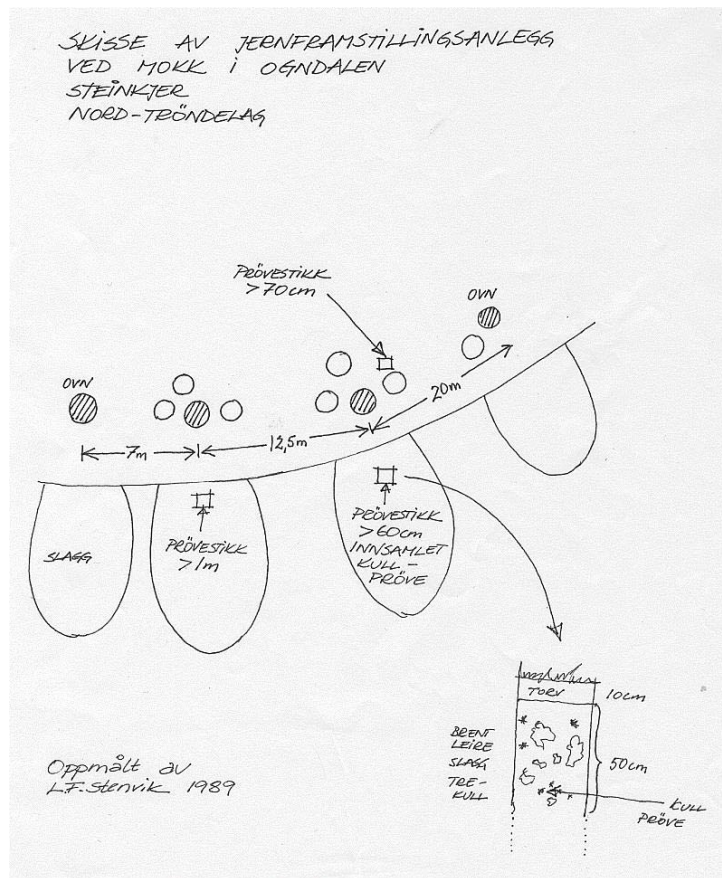 SKISSE AV JERNFRAMSTILLINGSANLEGG
VED MOKK I OGNDALEN
STEINKJER
NORD-TRÖNDELAG
PRÖVESTIKK
>70cm
OVN
OVN
20m
7m
12,5m
SLAGG
PRÖVESTIKK
>1m
PRÖVESTIKK
>60cm
INNSAMLET
KULL-
PRÖVE
TORV
10cm
BRENT
LEIRE
SLAGG
TRE-
KULL
50cm
KULL
PRÖVE
Oppmålt av
L.F. Stenvik 1989